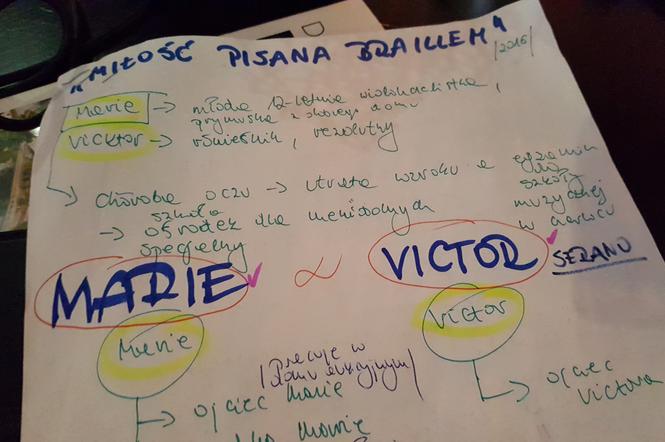 "MIŁOŚĆ PISANA BRAILLEM"
/2016/
Marie → młoda 12-letnia wiolonczelistka,
prymuska z dobrego domu
Vicktor → rówieśnik, rezolutny
→ Choroba oczu → utrata wzroku a egzamin
do szkoły
muzycznej
w czerwcu
→ szkoła
ośrodek dla niewidomych
specjalny
MARIE ∝ VICTOR
SERANO
Marie
Victor
/Pracuje w
domu aukcyjnym/
→ ojciec Marie
→ ojciec
Victora